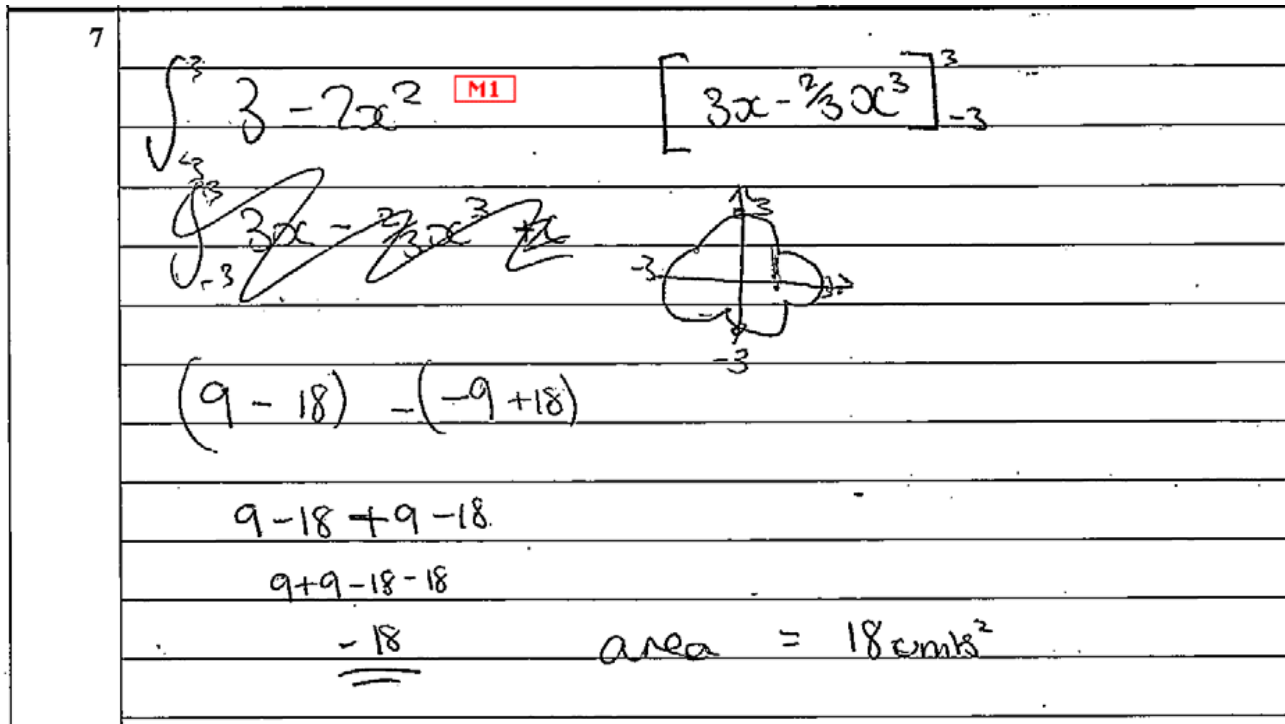 7
∫ 3 -3 3 - 2x² M1 [3x - ⅔x³] 3 -3
∫ 3 -3 3x - ⅔x³ + x
3
-3 3
-3
(9 - 18) - (-9 + 18)
9 - 18 + 9 - 18
9 + 9 - 18 - 18
- 18 area = 18 units²